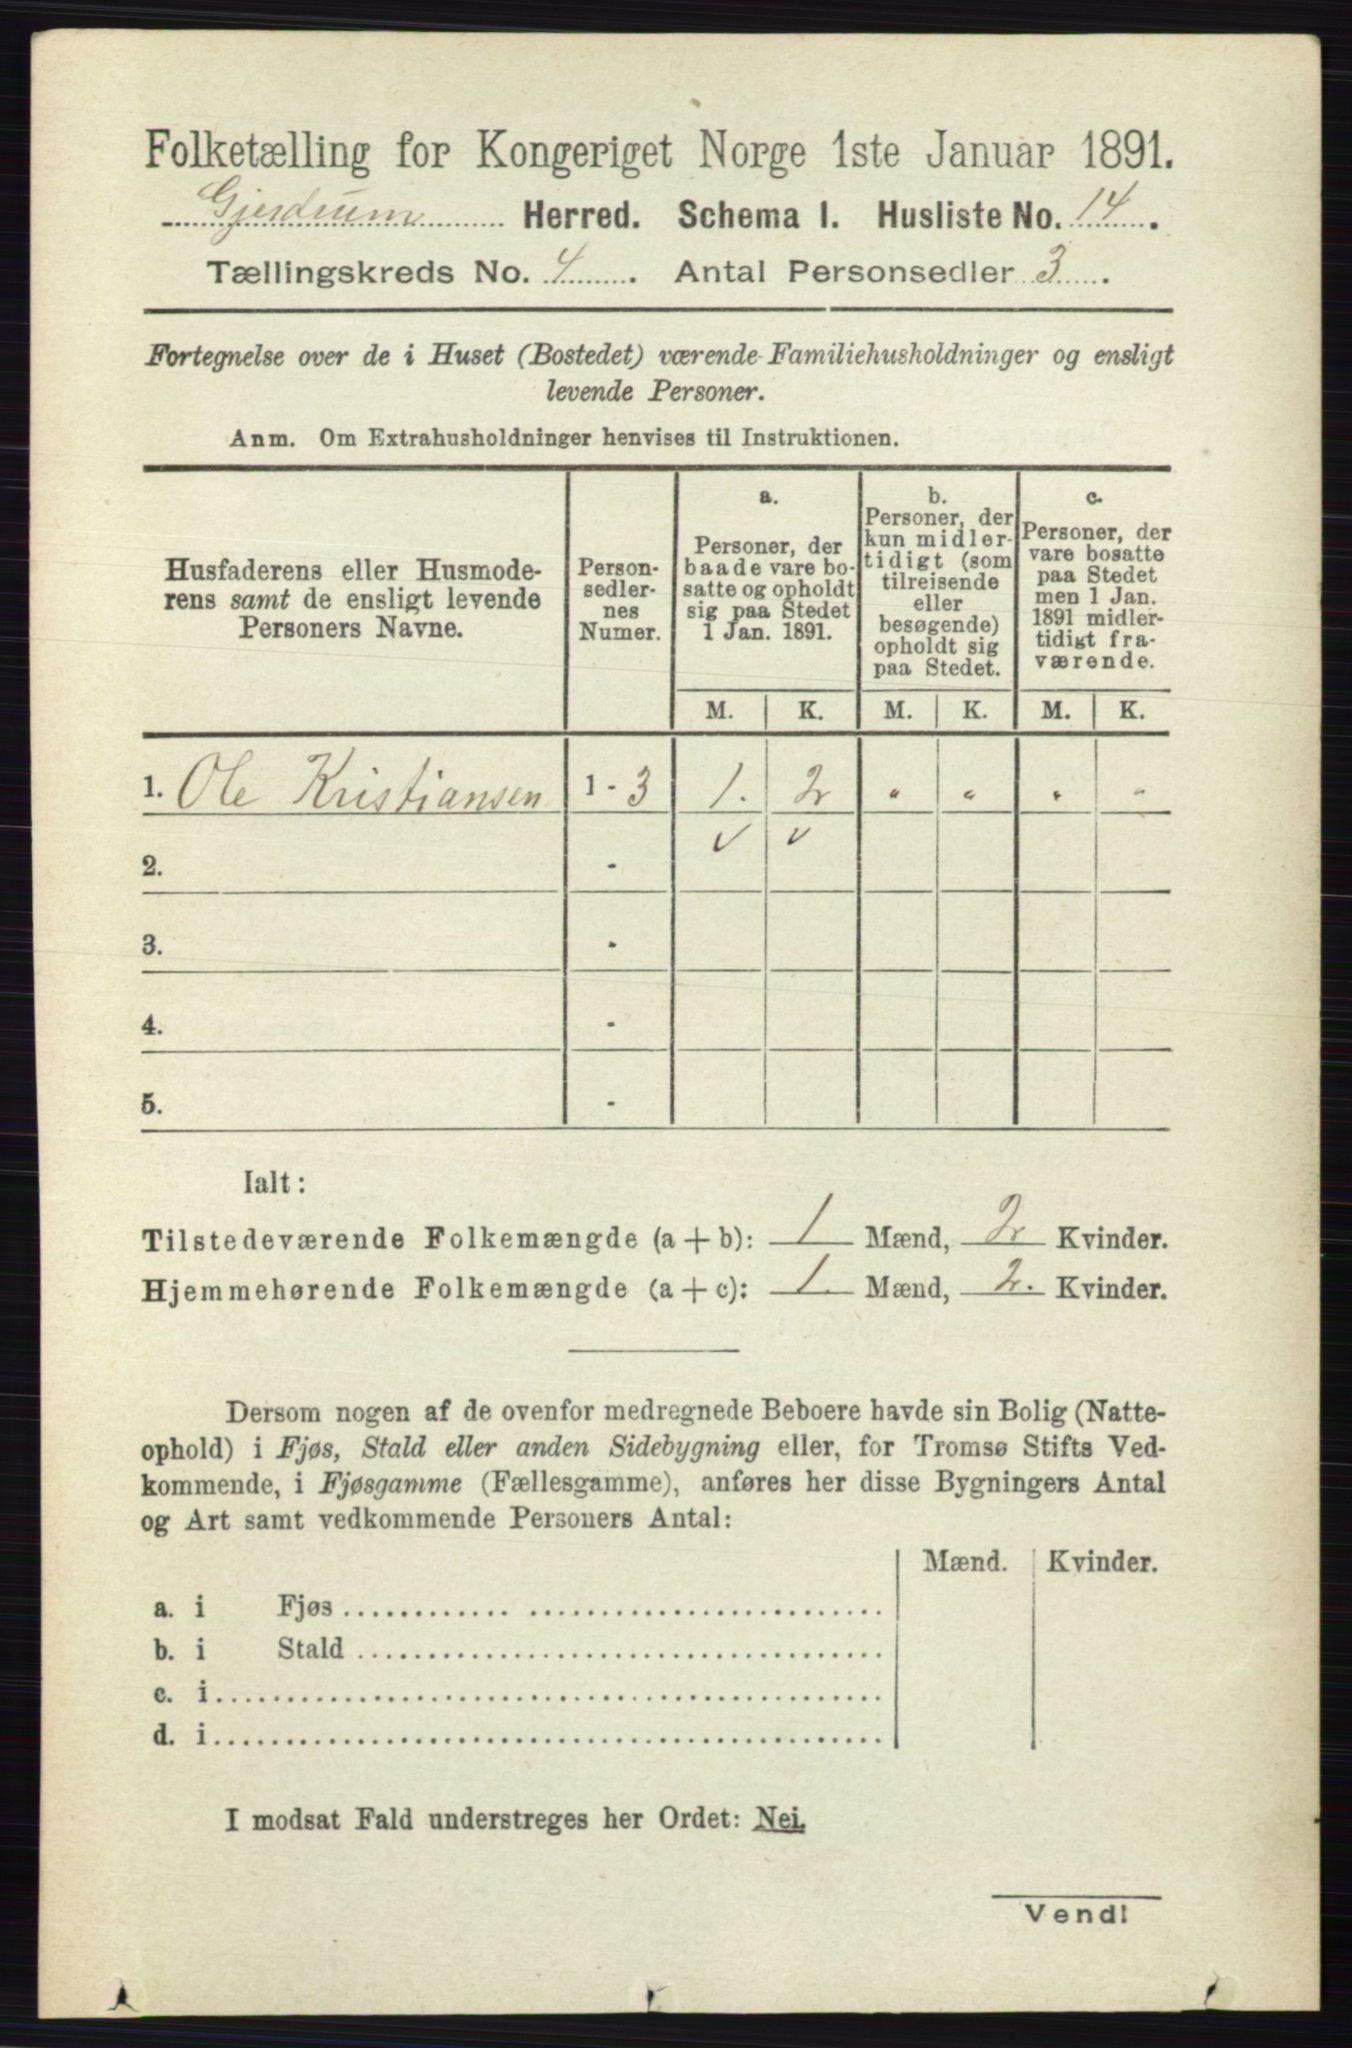 Folketælling for Kongeriget Norge 1ste Januar 1891.
Gjerdrum Herred. Schema I. Husliste No. 14.
Tællingskreds No. 4. Antal Personsedler 3.
Fortegnelse over de i Huset (Bostedet) værende Familiehusholdninger og ensligt
levende Personer.
Anm. Om Extrahusholdninger henvises til Instruktionen.
Husfaderens eller Husmode-
rens samt de ensligt levende
Personers Navne.
Person-
sedler-
nes
Numer.
a.
Personer, der
baade vare bo-
satte og opholdt
sig paa Stedet
1 Jan. 1891.
b.
Personer, der
kun midler-
tidigt (som
tilreisende
eller
besøgende)
opholdt sig
paa Stedet.
c.
Personer, der
vare bosatte
paa Stedet
men 1 Jan.
1891 midler-
tidigt fra-
værende.
M. K. M. K. M. K.
1. Ole Kristiansen 1 - 3 1. 2 " " " "
2. - v v
3. -
4. -
5. -
Ialt:
Tilstedeværende Folkemængde (a + b): 1 Mænd, 2 Kvinder.
Hjemmehørende Folkemængde (a + c): 1. Mænd, 2. Kvinder.
Dersom nogen af de ovenfor medregnede Beboere havde sin Bolig (Natte-
ophold) i Fjøs, Stald eller anden Sidebygning eller, for Tromsø Stifts Ved-
kommende, i Fjøsgamme (Fællesgamme), anføres her disse Bygningers Antal
og Art samt vedkommende Personers Antal:
Mænd. Kvinder.
a. i Fjøs
b. i Stald
c. i
d. i
I modsat Fald understreges her Ordet: Nei.
Vend!